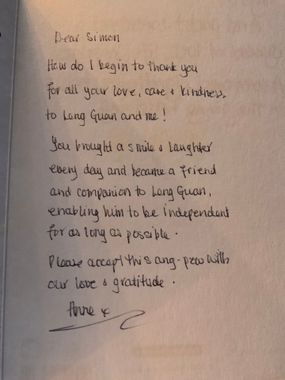 Dear Simon
How do I begin to thank you
for all your love, care & kindness
to Long Guan and me!
You brought a smile & laughter
every day and became a friend
and companion to Long Guan,
enabling him to be independent
for as long as possible.
Please accept this ang-pow with
our love & gratitude.
Anne x